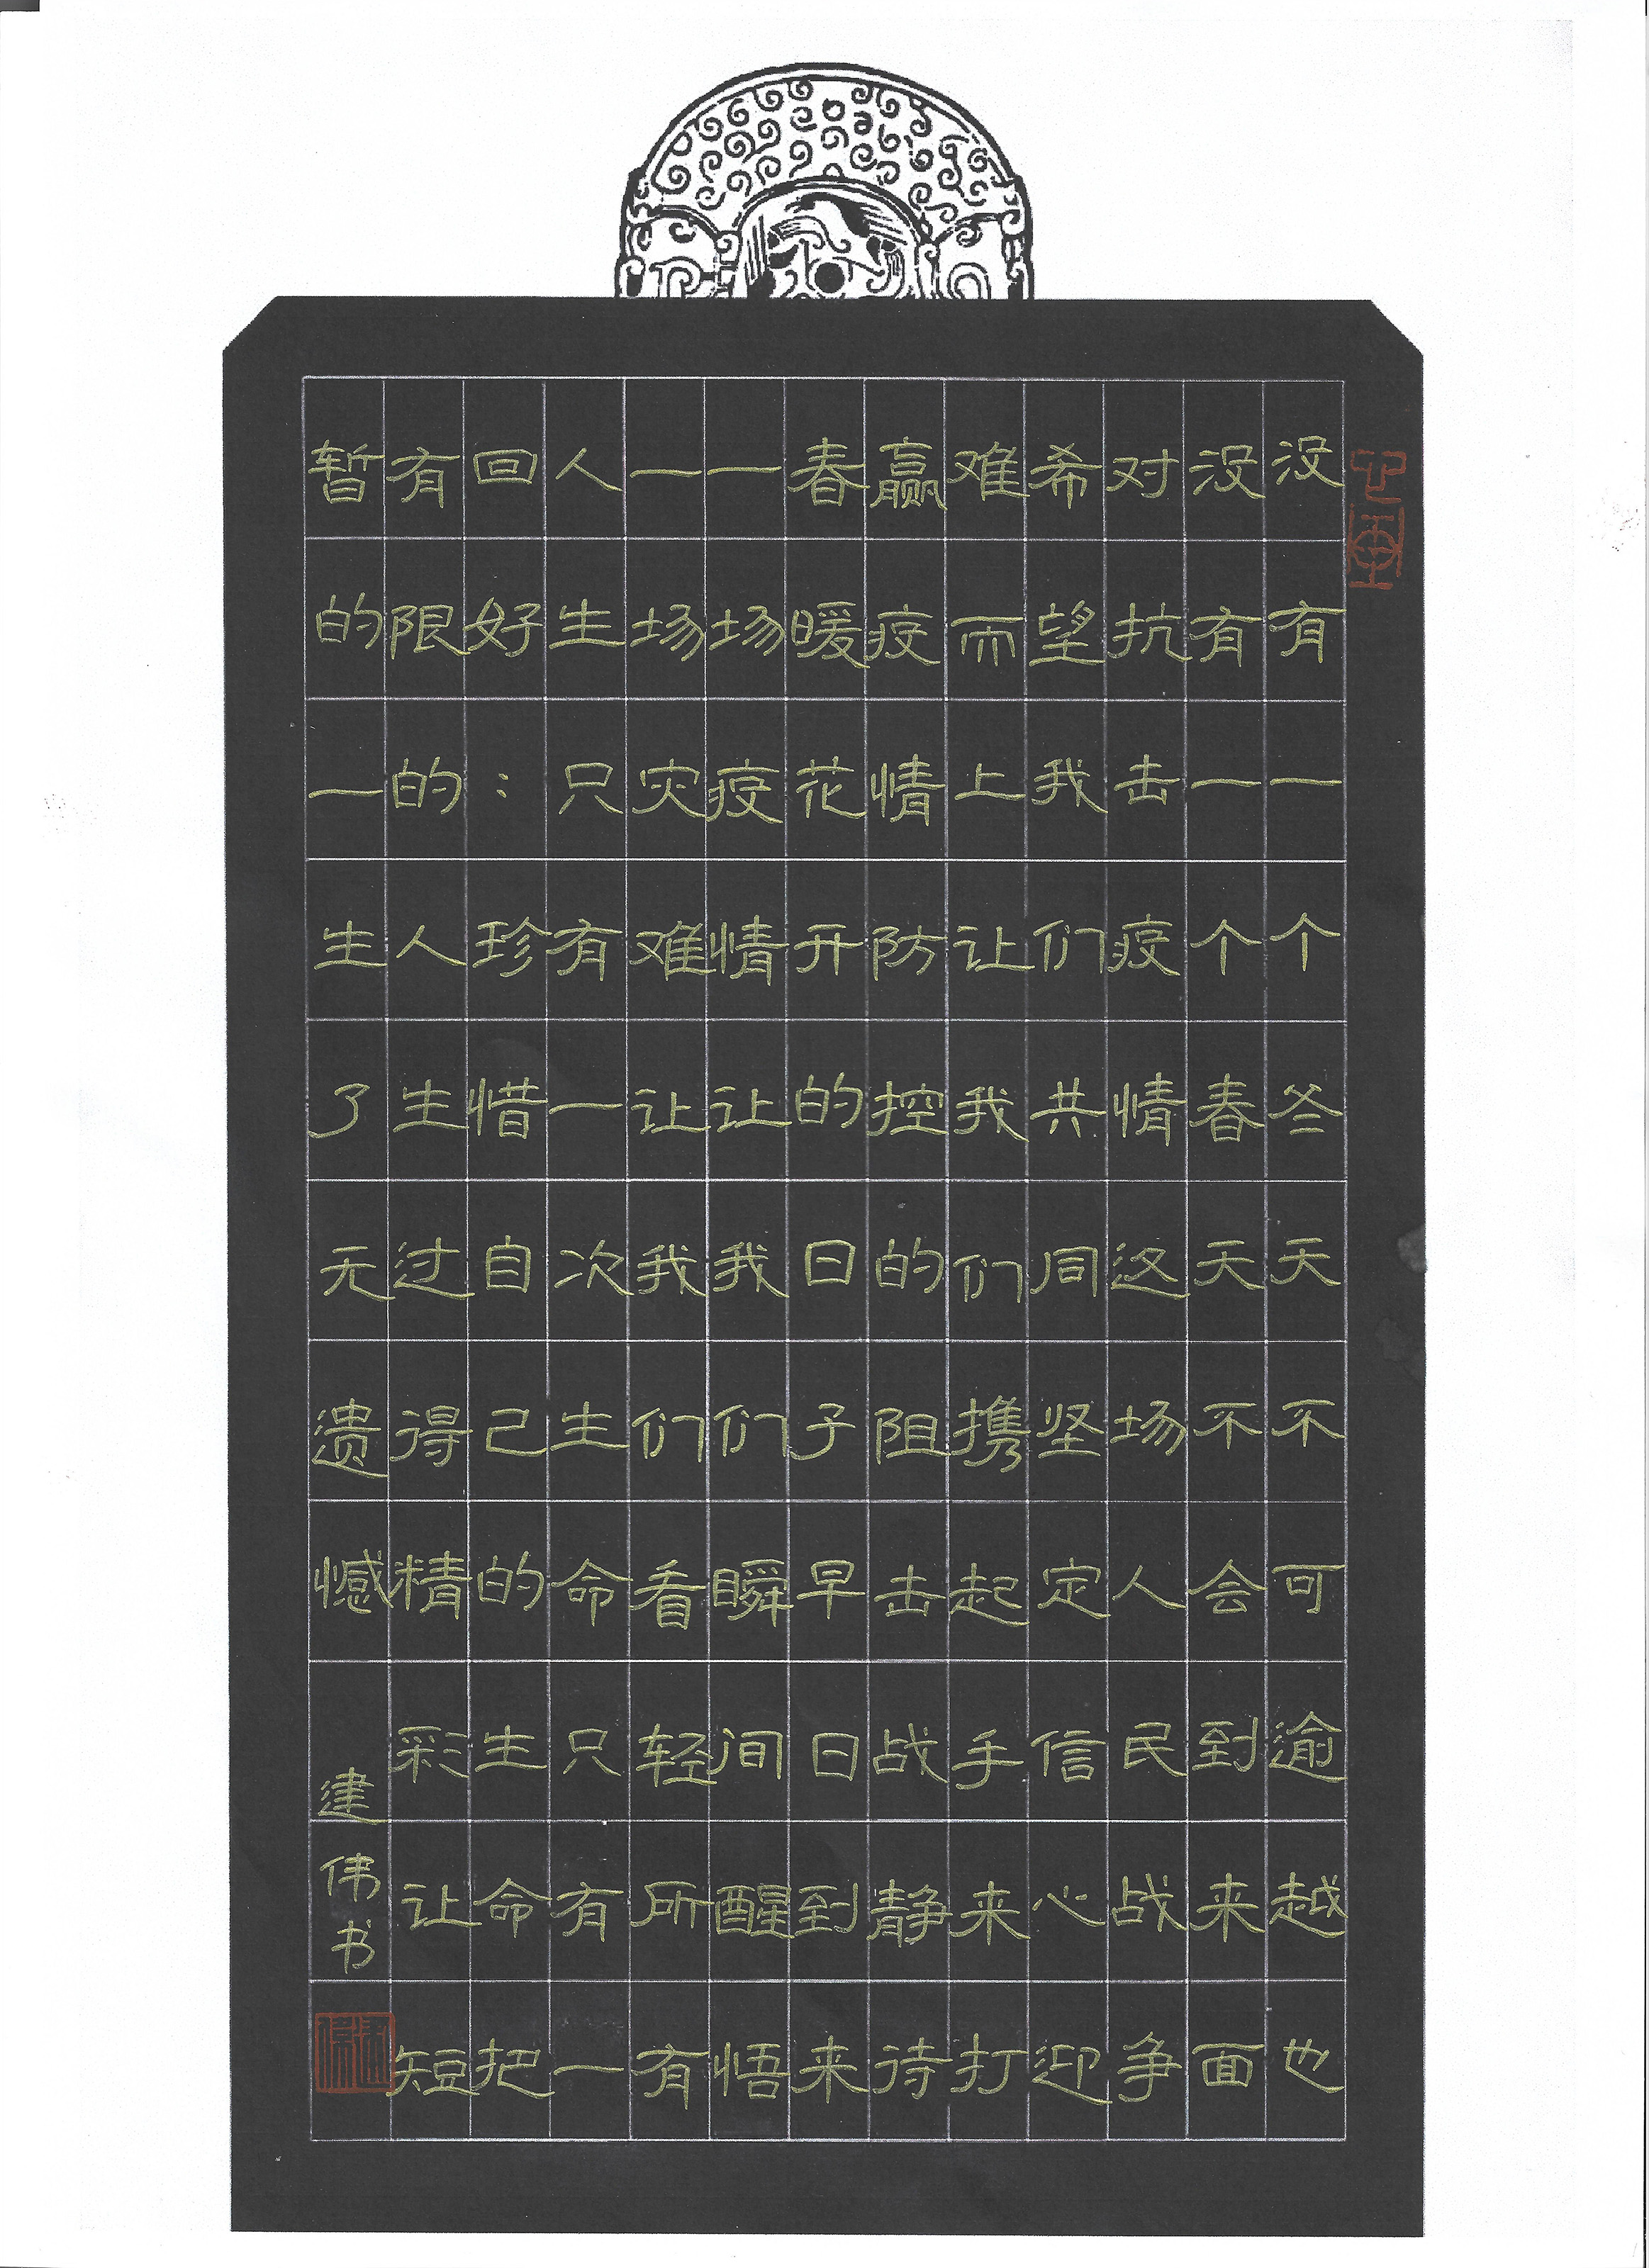 没有一个冬天不可逾越也
没有一个春天不会到来面
对抗击疫情这场人民战争
希望我们共同坚定信心迎
难而上让我们携起手来打
赢疫情防控的阻击战静待
春暖花开的日子早日到来
一场疫情让我们瞬间醒悟
一场灾难让我们看轻所有
人生只有一次生命只有一
回好:珍惜自己的生命把
有限的人生过得精彩让短
暂的一生了无遗憾
建伟书